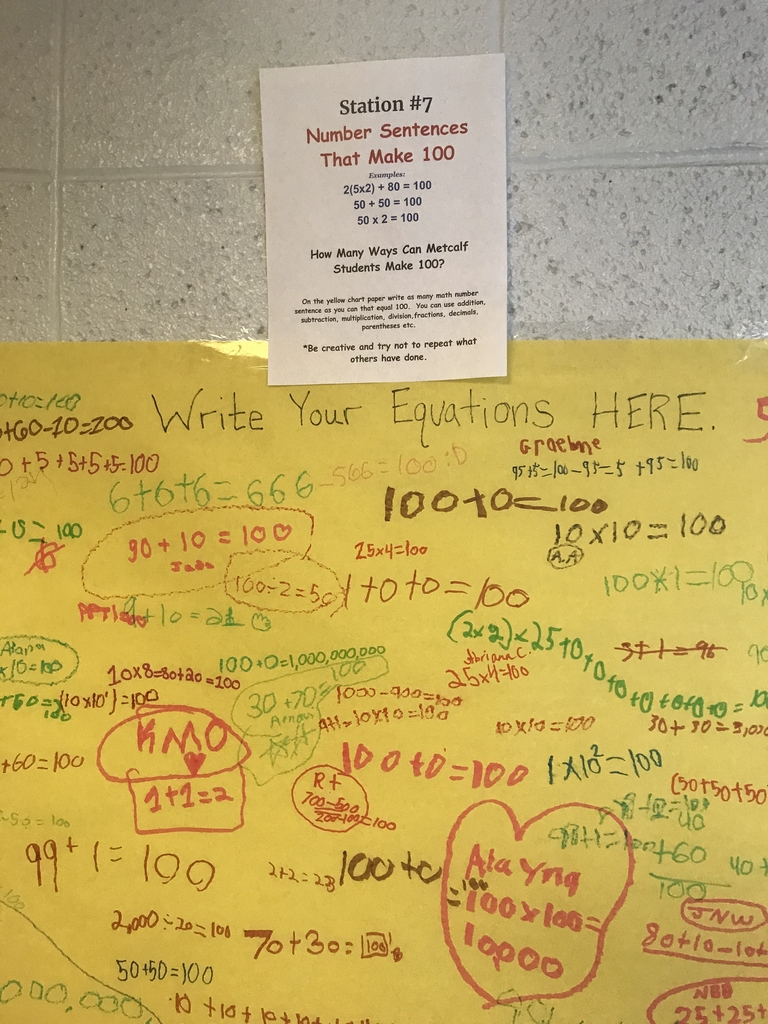 Station #7
Number Sentences
That Make 100
Examples:
2(5x2) + 80 = 100
50 + 50 = 100
50 x 2 = 100
How Many Ways Can Metcalf
Students Make 100?
On the yellow chart paper write as many math number
sentence as you can that equal 100. You can use addition,
subtraction, multiplication, division,fractions, decimals,
parentheses etc.
*Be creative and try not to repeat what
others have done.
Write Your Equations HERE.
+60-10=200
+5+5+5+5=100
6+6+6=666
-566=100 :D
Graebne
95+5=100-95-5 +95=100
100+0=100
10x10=100
A.A
90+10=100
Jada
25x4=100
100÷2=50
1+0+0=100
100x1=100
9+10=21
(2x2)x25+0+0+0+0+0+0+0=10
3+1=96
100+0=1,000,000,000
10x8=80+20=100
Abriana C.
25x4=100
Alana
x10=100
(10x10)=100
30+70=100
1000-900=100
10x10=100
10x10=100
30+30=3,000
KMO
1+1=2
+60=100
100+0=100
1x10²=100
(50+50+50
R+
700-500
200-100=100
99+1=100
2+2=23
100+0
=100
Alayna
100x100=
10000
99+1=100
40
+60
100
40+
2,000÷20=100
70+30=100
JNW
80+10-10+
50+50=100
10+10+10+10+
000,000,
NEB
25+25+